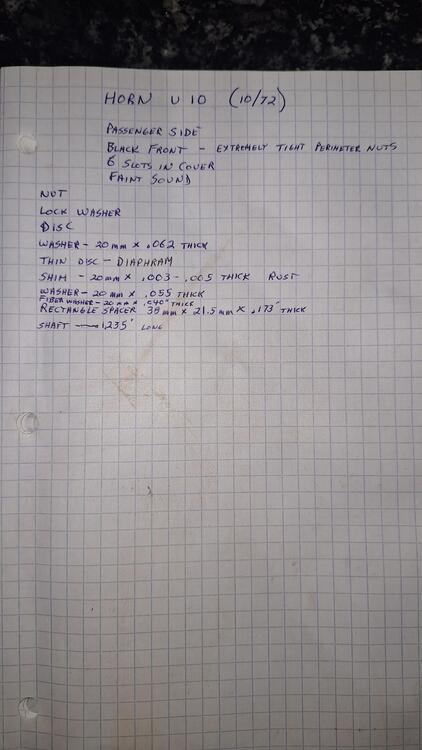 HORN U10 (10/72)
PASSENGER SIDE
BLACK FRONT - EXTREMELY TIGHT PERIMETER NUTS
6 SLOTS IN COVER
FAINT SOUND
NUT
LOCK WASHER
DISC
WASHER - 20mm x .062 THICK
THIN DISC - DIAPHRAM
SHIM - 20mm x .003 - .005 THICK RUST
WASHER - 20mm x .055 THICK
FIBER WASHER - 20mm x .040" THICK
RECTANGLE SPACER 38mm x 21.5mm x .173" THICK
SHAFT — 1.235" LONG